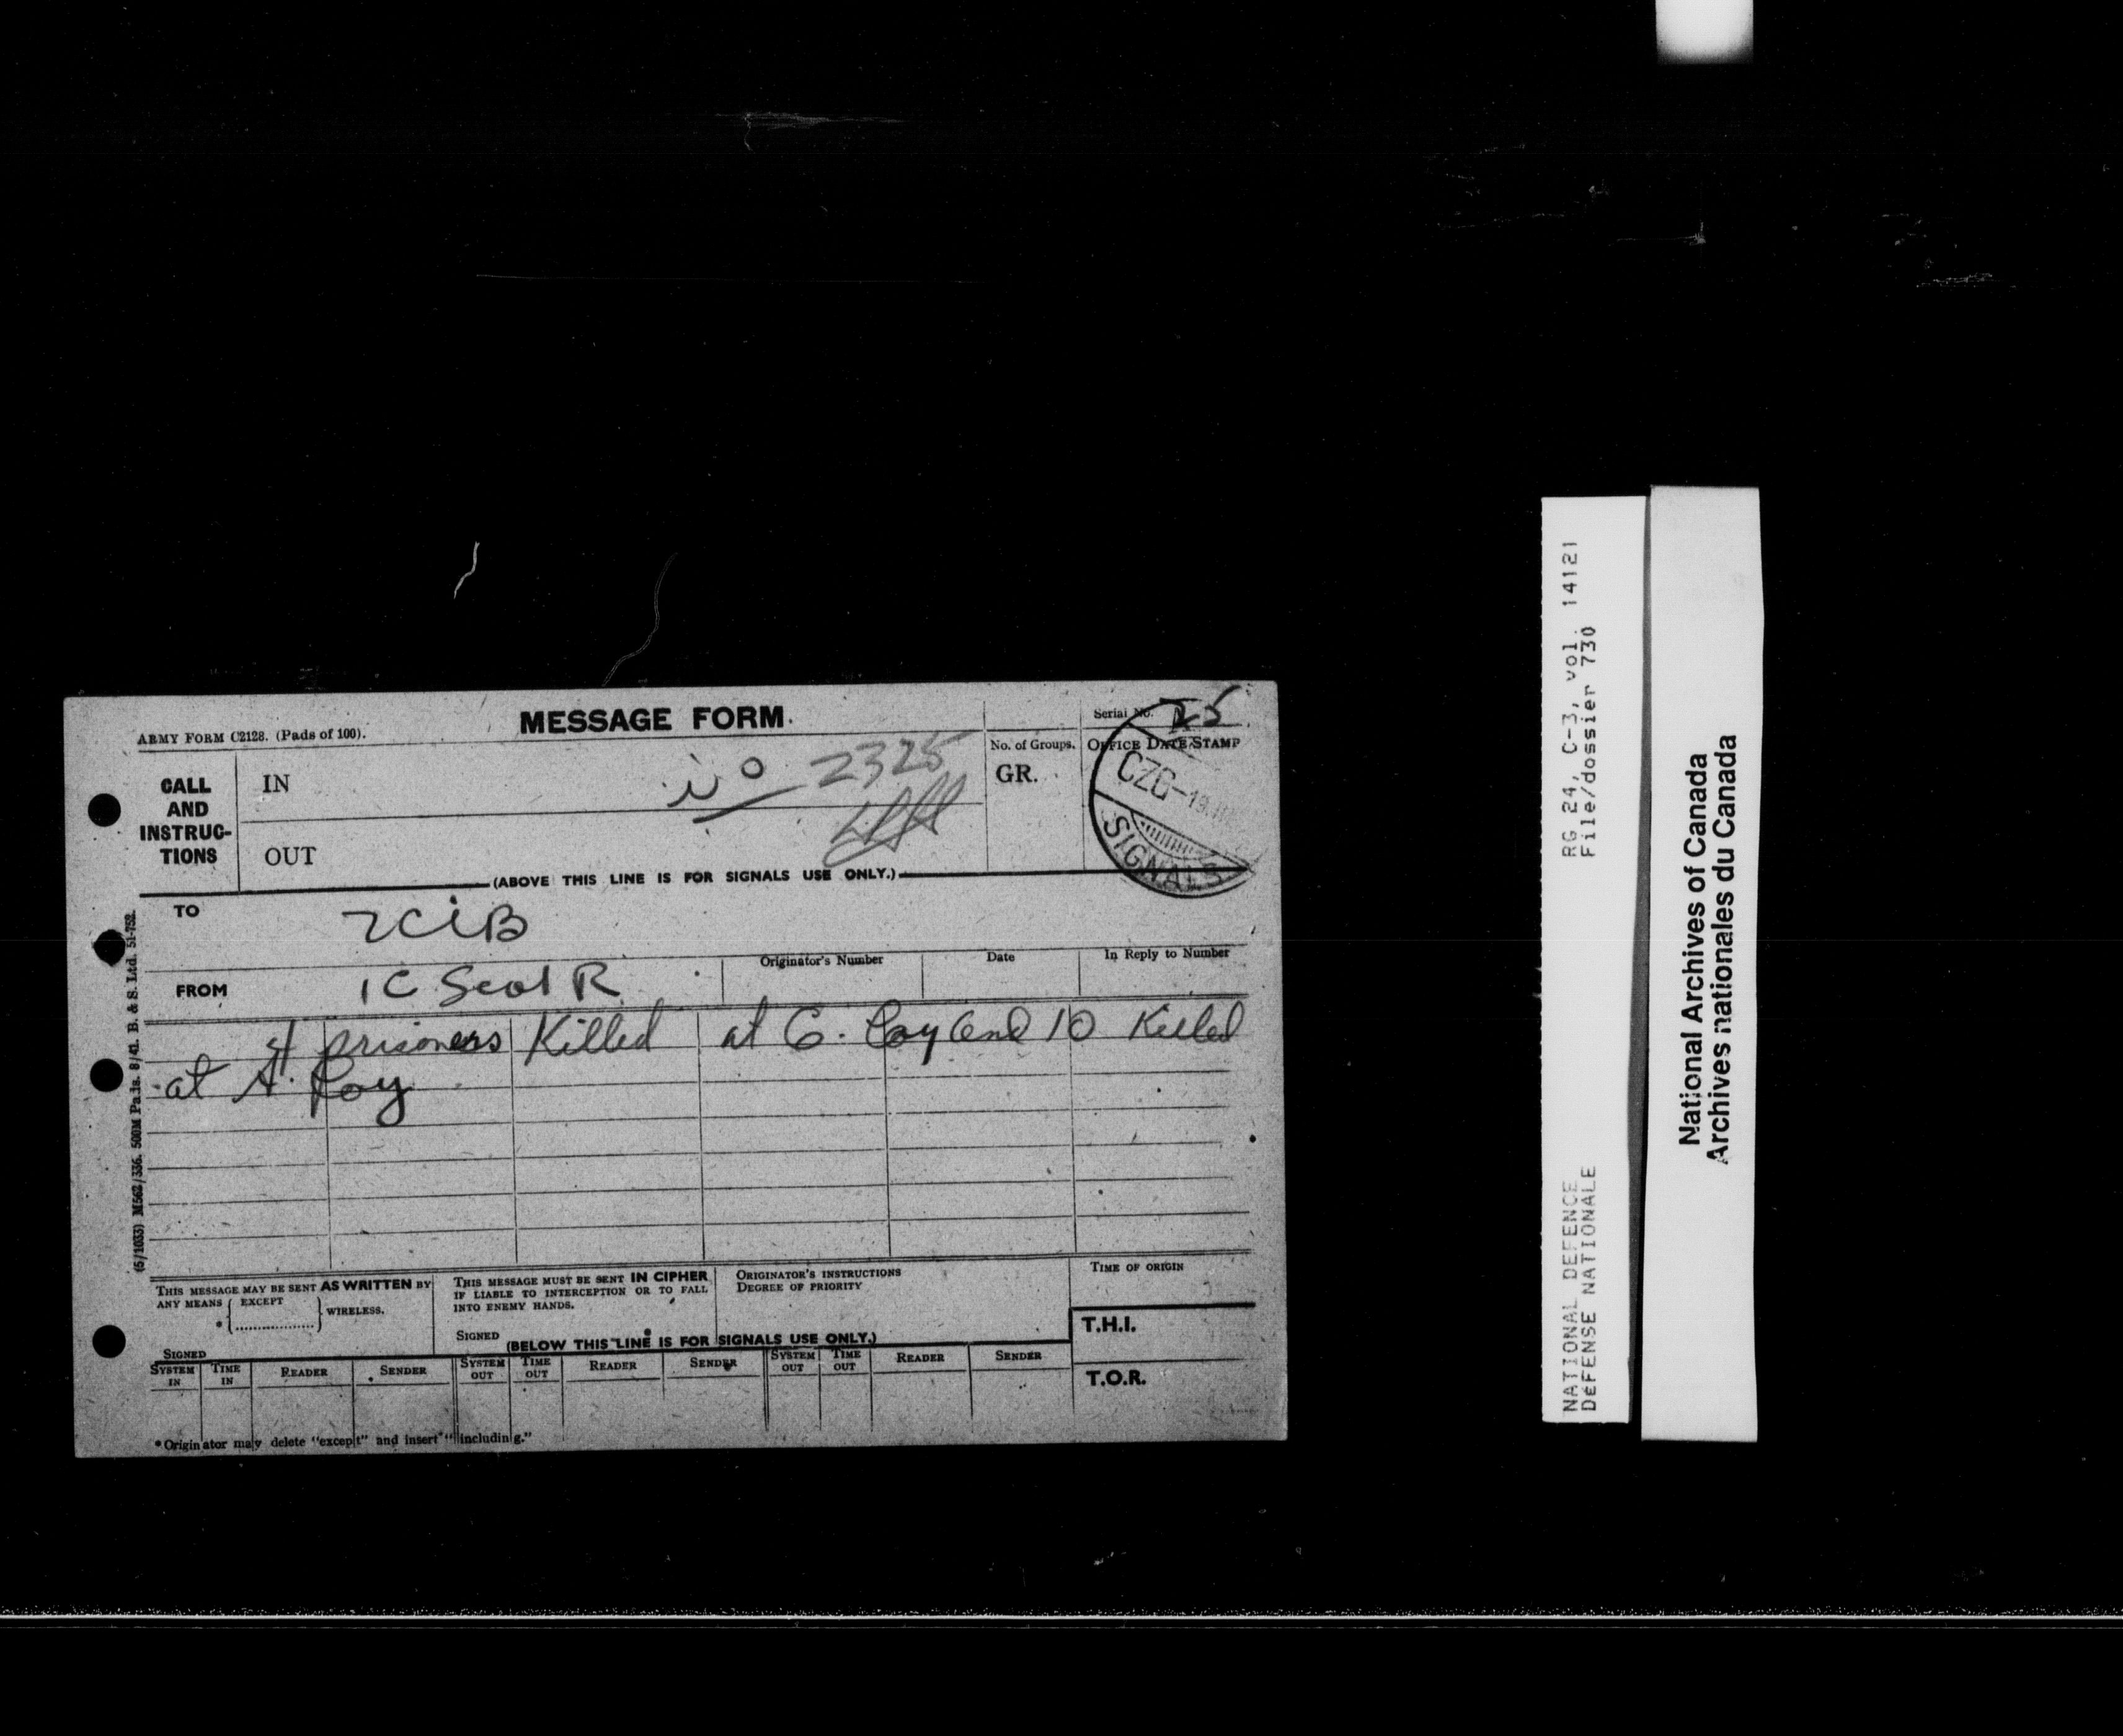 ARMY FORM C2128. (Pads of 100).
MESSAGE FORM.
Serial No.
25
CALL
AND
INSTRUC-
TIONS
IN
2325
OUT
No. of Groups.
GR.
OFFICE DATE STAMP
CZG-19
SIGNALS
(ABOVE THIS LINE IS FOR SIGNALS USE ONLY.)
TO
7CIB
FROM
1C Scot R
Originator's Number
Date
In Reply to Number
4 prisoners Killed at C. Coy and 10 Killed
at A. Coy
(5/1033) M562/336. 500M Pads. 8/41. B. & S. Ltd. 51-752.
THIS MESSAGE MAY BE SENT AS WRITTEN BY
ANY MEANS
EXCEPT
*
WIRELESS.
SIGNED
THIS MESSAGE MUST BE SENT IN CIPHER
IF LIABLE TO INTERCEPTION OR TO FALL
INTO ENEMY HANDS.
SIGNED
ORIGINATOR'S INSTRUCTIONS
DEGREE OF PRIORITY
TIME OF ORIGIN
(BELOW THIS LINE IS FOR SIGNALS USE ONLY.)
T.H.I.
T.O.R.
SYSTEM IN
TIME IN
READER
SENDER
SYSTEM OUT
TIME OUT
READER
SENDER
SYSTEM OUT
TIME OUT
READER
SENDER
*Originator may delete "except" and insert "including."
NATIONAL DEFENCE RG 24, C-3, vol. 14121
DéFENSE NATIONALE File/dossier 730
National Archives of Canada
Archives nationales du Canada